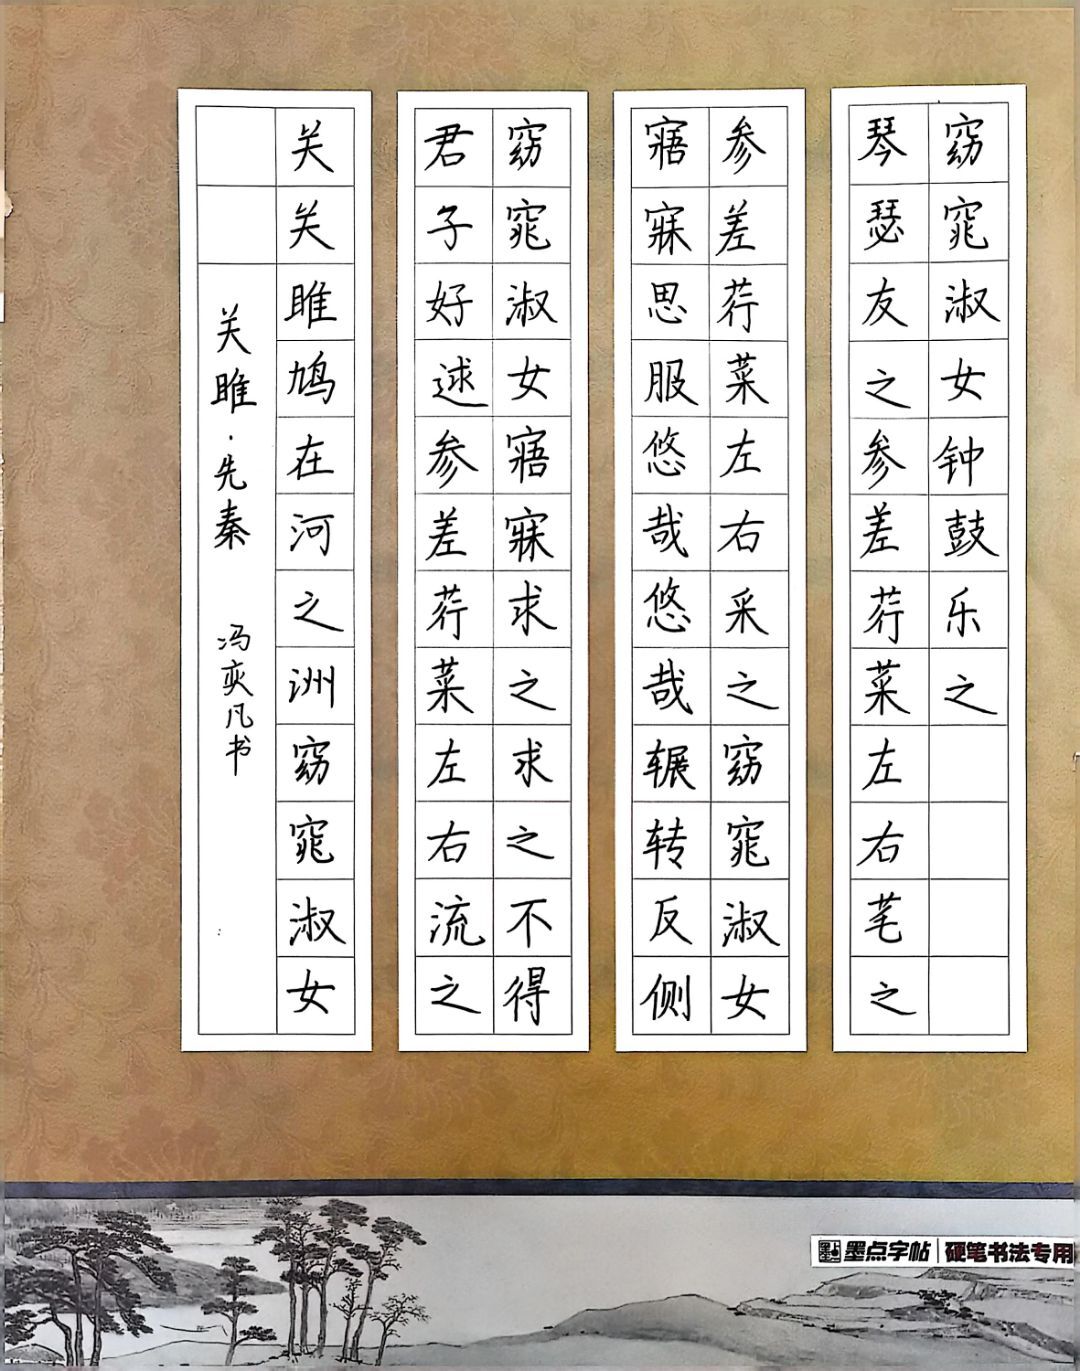 关雎·先秦 冯奕凡书
关关雎鸠在河之洲窈窕淑女
君子好逑参差荇菜左右流之
窈窕淑女寤寐求之求之不得
寤寐思服悠哉悠哉辗转反侧
参差荇菜左右采之窈窕淑女
琴瑟友之参差荇菜左右芼之
窈窕淑女钟鼓乐之
墨点字帖 硬笔书法专用